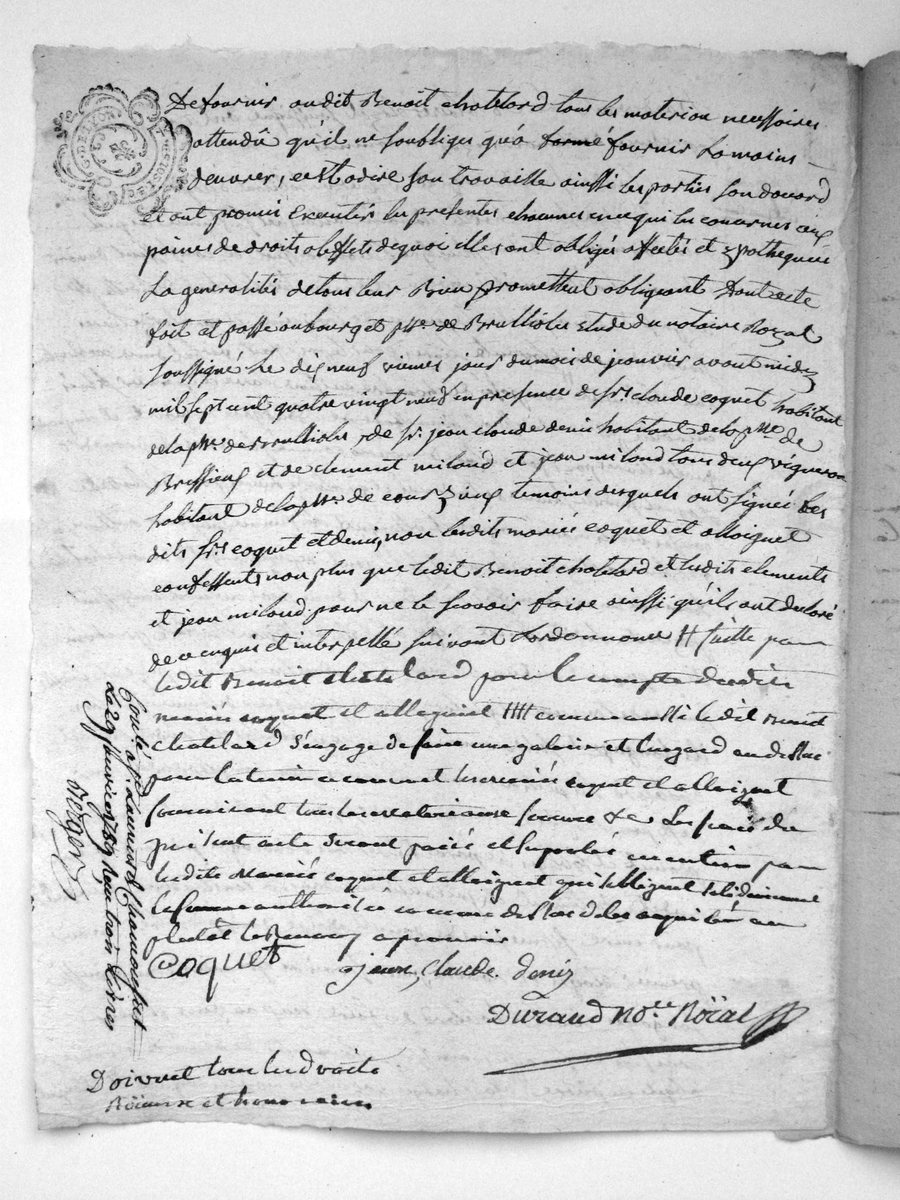 De fournir audit Benoit chatelard tous les materiau neccssaires
attendû qu'il ne soubliges qu'a formé fournir La mains
deuvrer, cest adire son travaille ainssi les parties son dacord
et ont promis Executés les presentes chacunes en ce qui les concernes aux
paines de droits a l'effets de quoi elles ont obligés affectés et ypothequée
La generalités de tous leur Bien promettent obligeant Dont acte
fait et passé au bourg et psse de Brullioles etude du notaire Royal
soussigné Le dix neuf viemes jour du mois de jeanvier avant midy
mil sept cent quatre vingt neuf en presence de sr claude coquet habitant
de la psse de Brullioles et de sr jean claude denis habitant de la psse de
Brussieux et de clement milaud et jean milaud tous deux vigneron
habitant de la psse de courzieux temoins desquels ont signés Les
dits srs coquet et denis, non lesdits mariés coquet et alloignet
confessents non plus que ledit Benoit chatelard et lesdits clements
et jean milaud pour ne le scavoir faire ainssi qu'ils ont declaré
de ce enquis et interpellé suivant Lordonnance # faitte par
ledit Benoit chatelard pour le compte desdits
mariés coquet et alloignet #### comme aussi ledit Benoit
chatelard s'engage de faire une galerie et au dessus
pour et les mariés coquet et alloignet
fournissant tous les Les frais du
present acte seront paiés et suportés en entier par
lesdits Mariés coquet et alloignet qui s'obligent solidairement
la femme authorisée comme dessus de les aquiter au
plutôt
Coquet
jean, claude denis
Durand Nore Roïal
Conlé a St Laurent de Chamousset
Le 29 janvier 1789 Reçu trois livres
Berger
Doivent tous les droits
Roïaux et honoraires